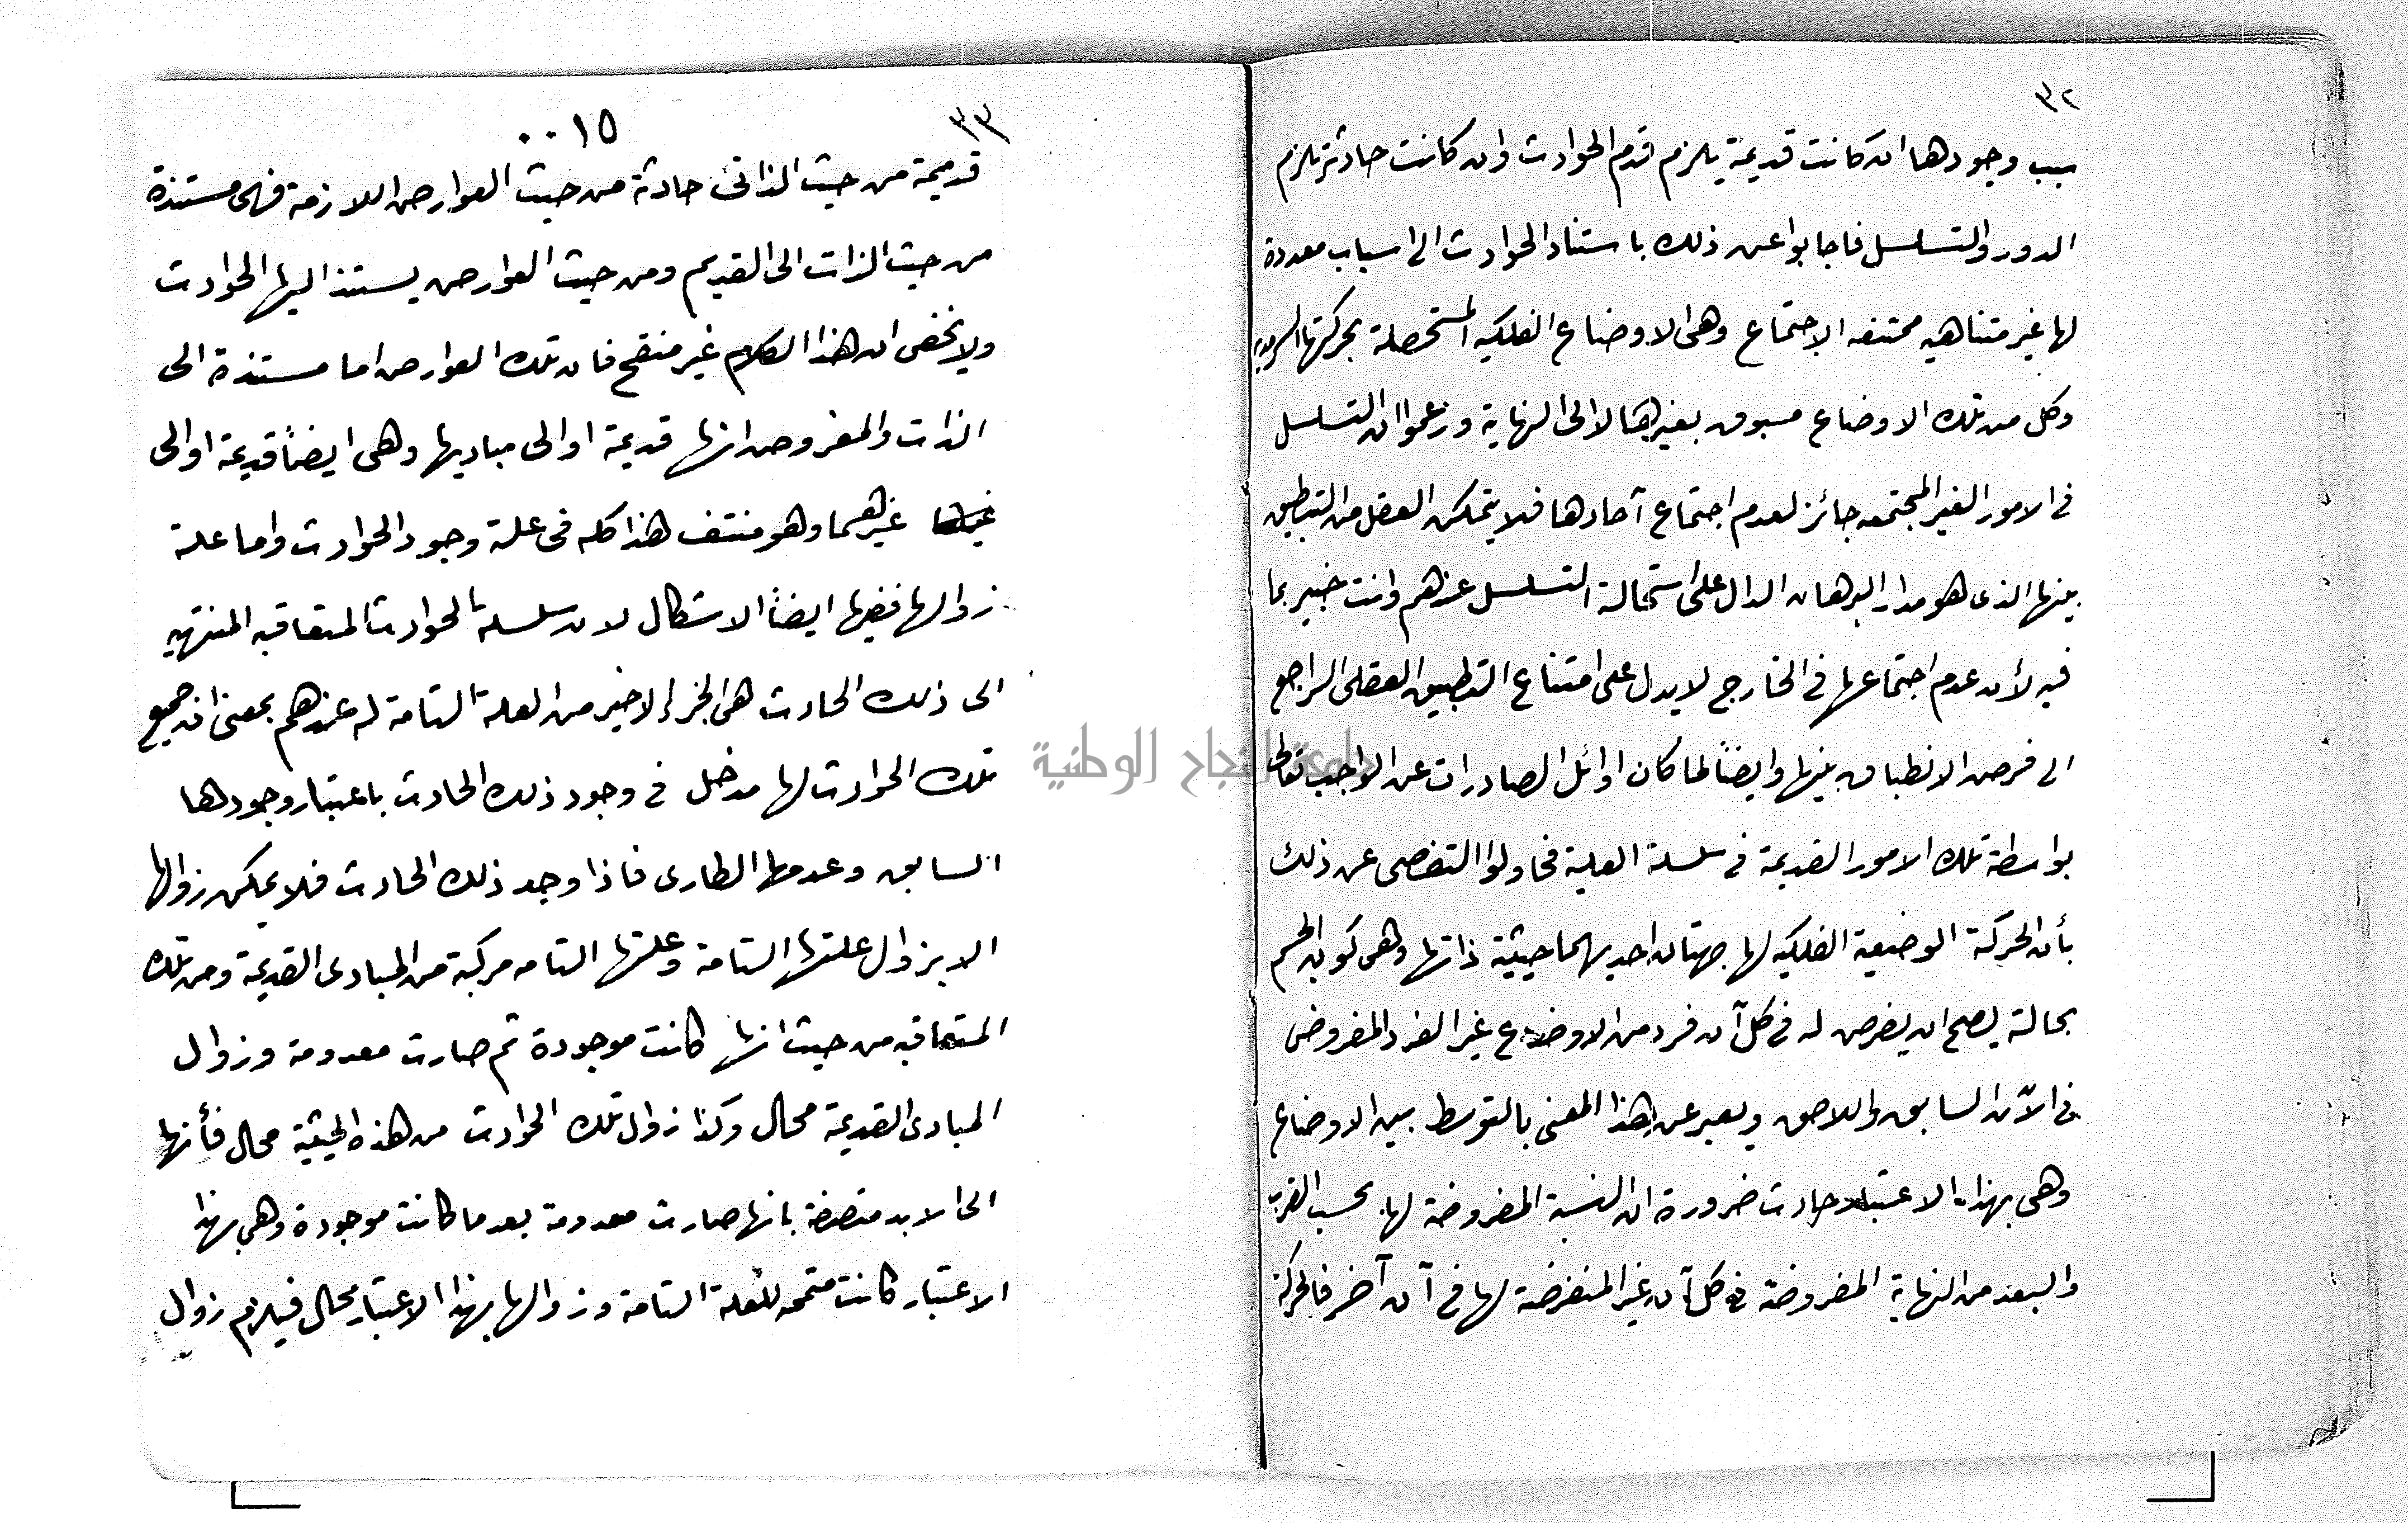 ٣٢
سبب وجودها ان كانت قديمة يلزم قدم الحوادث وان كانت حادثة يلزم
الدور والتسلسل فاجابوا عن ذلك باستناد الحوادث الى اسباب معدة
لها غير متناهيه ممتنعه الاجتماع وهى الاوضاع الفلكيه المستحصلة بحركتها السرمديه
وكل من تلك الاوضاع مسبوق بغيرها لا الى النهاية وزعموا ان التسلسل
فى الامور الغير المجتمعه جائز لعدم اجتماع آحادها فلا يتمكن العقل من التطبيق
بينها الذى هو مدار البرهان الدال على استحالة التسلسل عندهم وانت خبير بما
فيه لأن عدم اجتماعها فى الخارج لا يدل على امتناع التطبيق العقلى الراجع
الى فرض الانطباق بينها وايضاً لما كان اوائل الصادرات عن الواجب تعالى
بواسطة تلك الامور القديمة فى سلسلة العلية فحاولوا التفصى عن ذلك
بأن الحركة الوضعية الفلكيه لها جهتان احديهما حيثية ذاتها وهى كون الجسم
بحالة يصح ان يفرض له فى كل آن فرد من الاوضاع غير الفرد المفروض
فى الآن السابق واللاحق ويعبر عن هذا المعنى بالتوسط بين الاوضاع
وهى بهذا الاعتبار حادث ضرورة ان النسبة المفروضة لها بحسب القرب
والبعد من النهاية المفروضة فى كل آن غير المنفرضة لها فى آن آخر فالحركة
٣٣
٠٠١٥
قديمة من حيث الذاتى حادثة من حيث العوارض اللازمة فهى مستندة
من حيث الذات الى القديم ومن حيث العوارض يستند اليها الحوادث
ولا يخفى ان هذا الكلام غير منقح فان تلك العوارض اما مستندة الى
الذات والمفروض انها قديمة او الى مباديها وهى ايضاً قديمة او الى
غيرهما وهو منتف هذا كله فى علة وجود الحوادث واما علة
زوالها ففيها ايضاً الاشكال لان سلسلة الحوادث المتعاقبه المنتهيه
الى ذلك الحادث هى الجزء الاخير من العلة التامة له عندهم بمعنى ان جميع
تلك الحوادث لها مدخل فى وجود ذلك الحادث باعتبار وجودها
السابق وعدمها الطارى فاذا وجد ذلك الحادث فلا يمكن زوالها
الا بزوال علتها التامة وعلتها التامه مركبة من المبادى القديمة ومن تلك
المتعاقبه من حيث انها كانت موجودة ثم صارت معدومة وزوال
المبادى القديمة محال وكذا زوال تلك الحوادث من هذه الحيثية محال فأنها
الى الابد متصفة بانها صارت معدومة بعد ما كانت موجودة وهى بهذا
الاعتبار كانت متممه للعلة التامة وزوالها بهذا الاعتبار محال فيلزم زوال
جامعة النجاح الوطنية